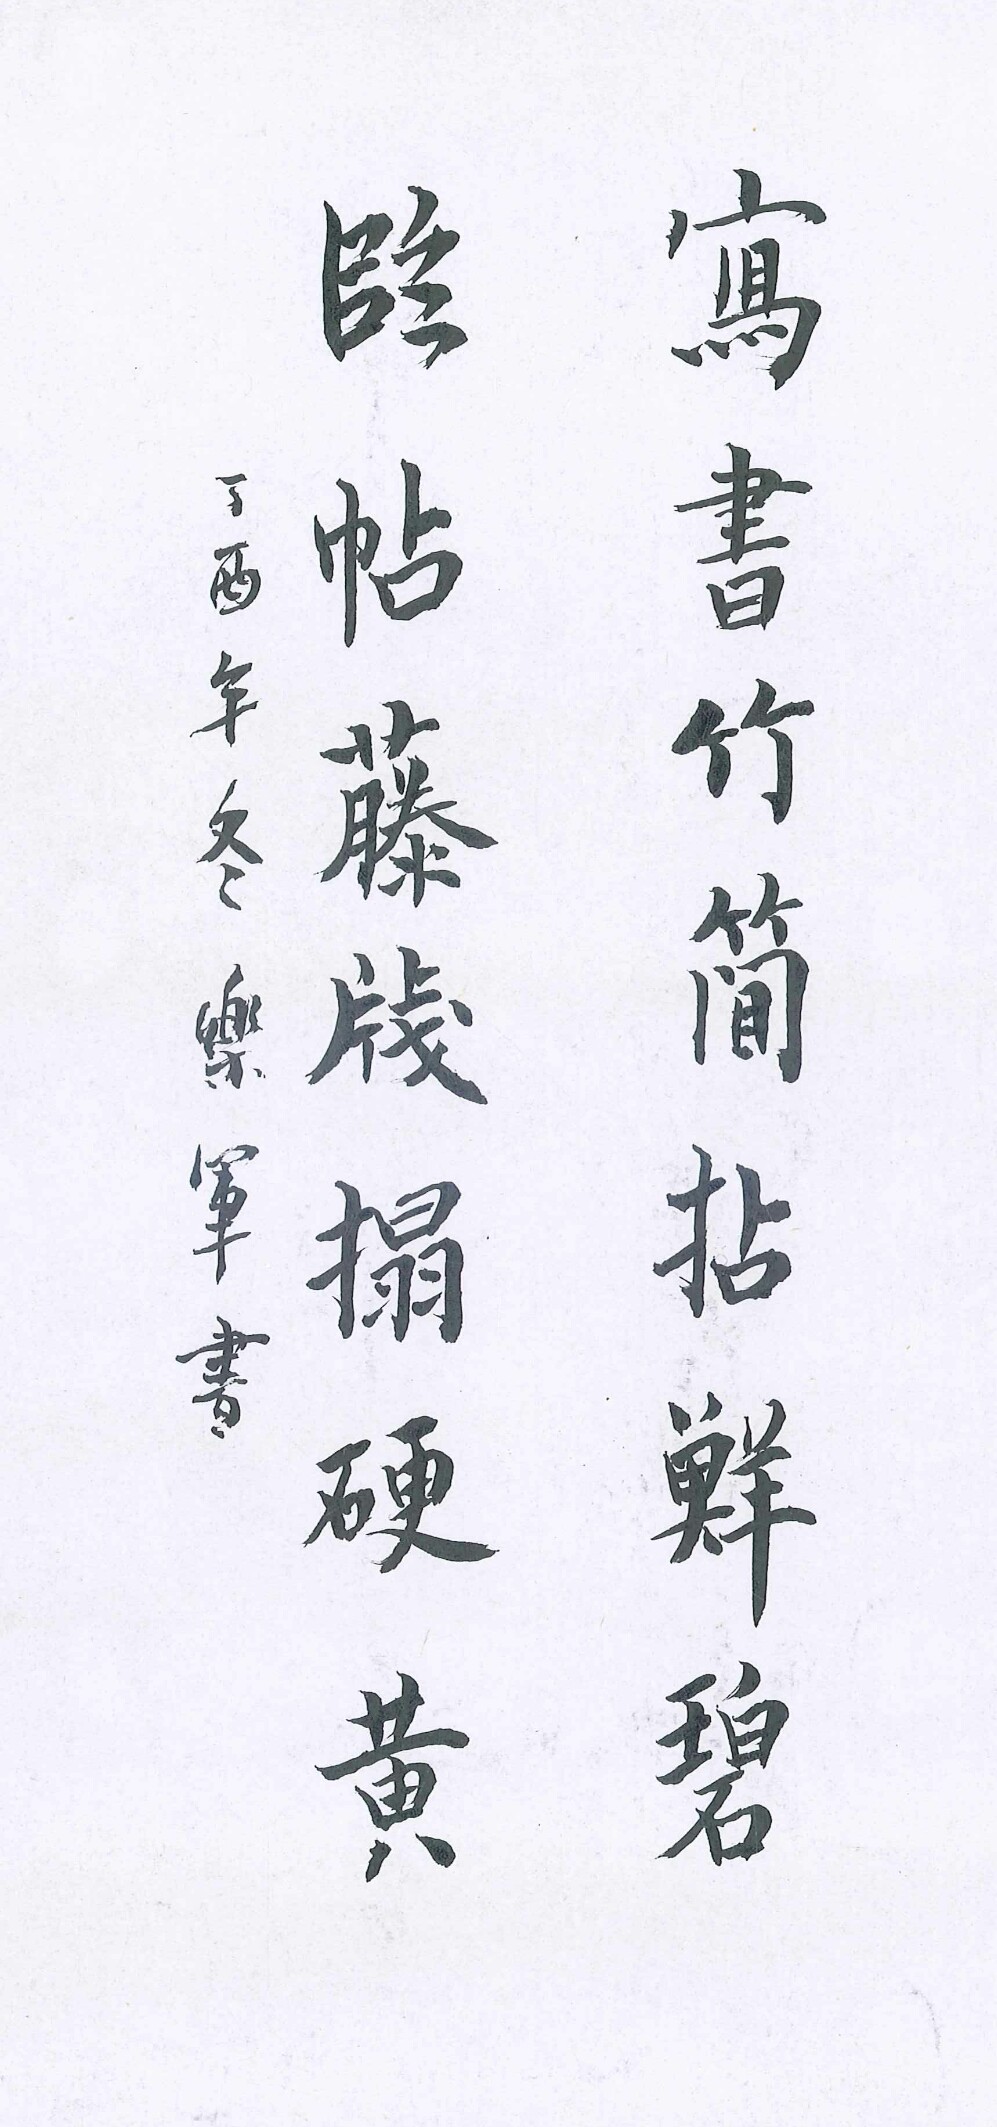 寫書竹簡拈鮮碧
臨帖藤牋搨硬黃
丁酉年冬樂軍書